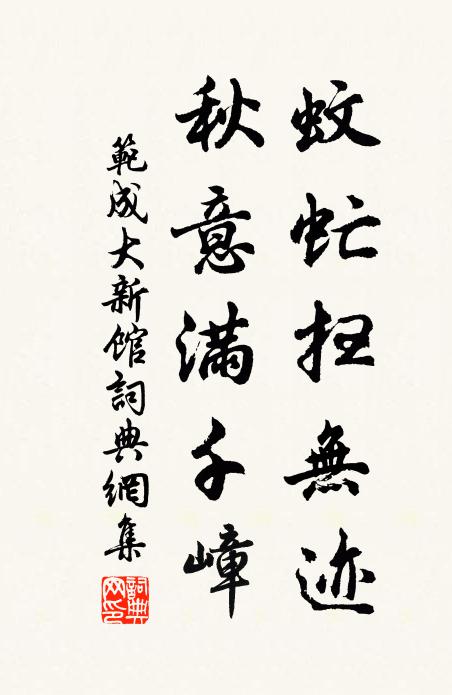 蚊虻扫無迹
秋意滿千嶂
範成大新館詞典網集
詞典網印